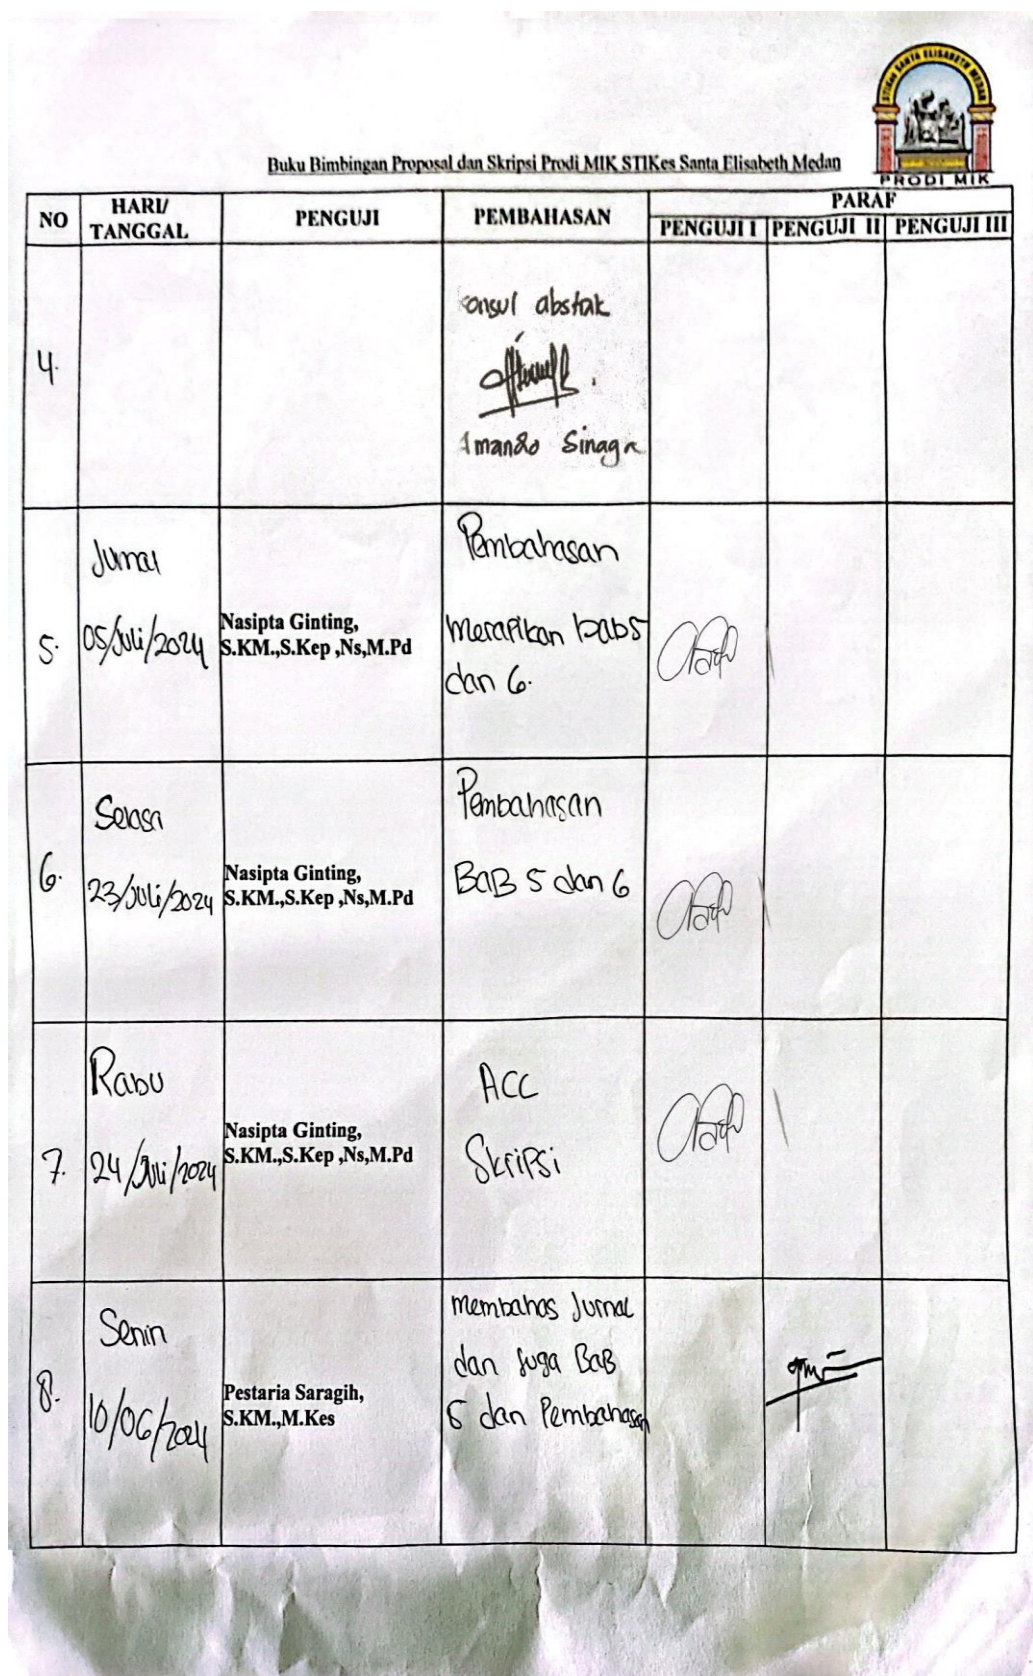 STIKes SANTA ELISABETH MEDAN
PRODI MIK
Buku Bimbingan Proposal dan Skripsi Prodi MIK STIKes Santa Elisabeth Medan
NO
HARI/
TANGGAL
PENGUJI
PEMBAHASAN
PARAF
PENGUJI I
PENGUJI II
PENGUJI III
4.
konsul abstak
Amando Sinaga
5.
Jumat
05/Juli/2024
Nasipta Ginting,
S.KM.,S.Kep ,Ns,M.Pd
Pembahasan
merapikan bab 5
dan 6.
6.
Selasa
23/Juli/2024
Nasipta Ginting,
S.KM.,S.Kep ,Ns,M.Pd
Pembahasan
BAB 5 dan 6
7.
Rabu
24/Juli/2024
Nasipta Ginting,
S.KM.,S.Kep ,Ns,M.Pd
ACC
Skripsi
8.
Senin
10/06/2024
Pestaria Saragih,
S.KM.,M.Kes
membahas Jurnal
dan juga BaB
5 dan Pembahasan